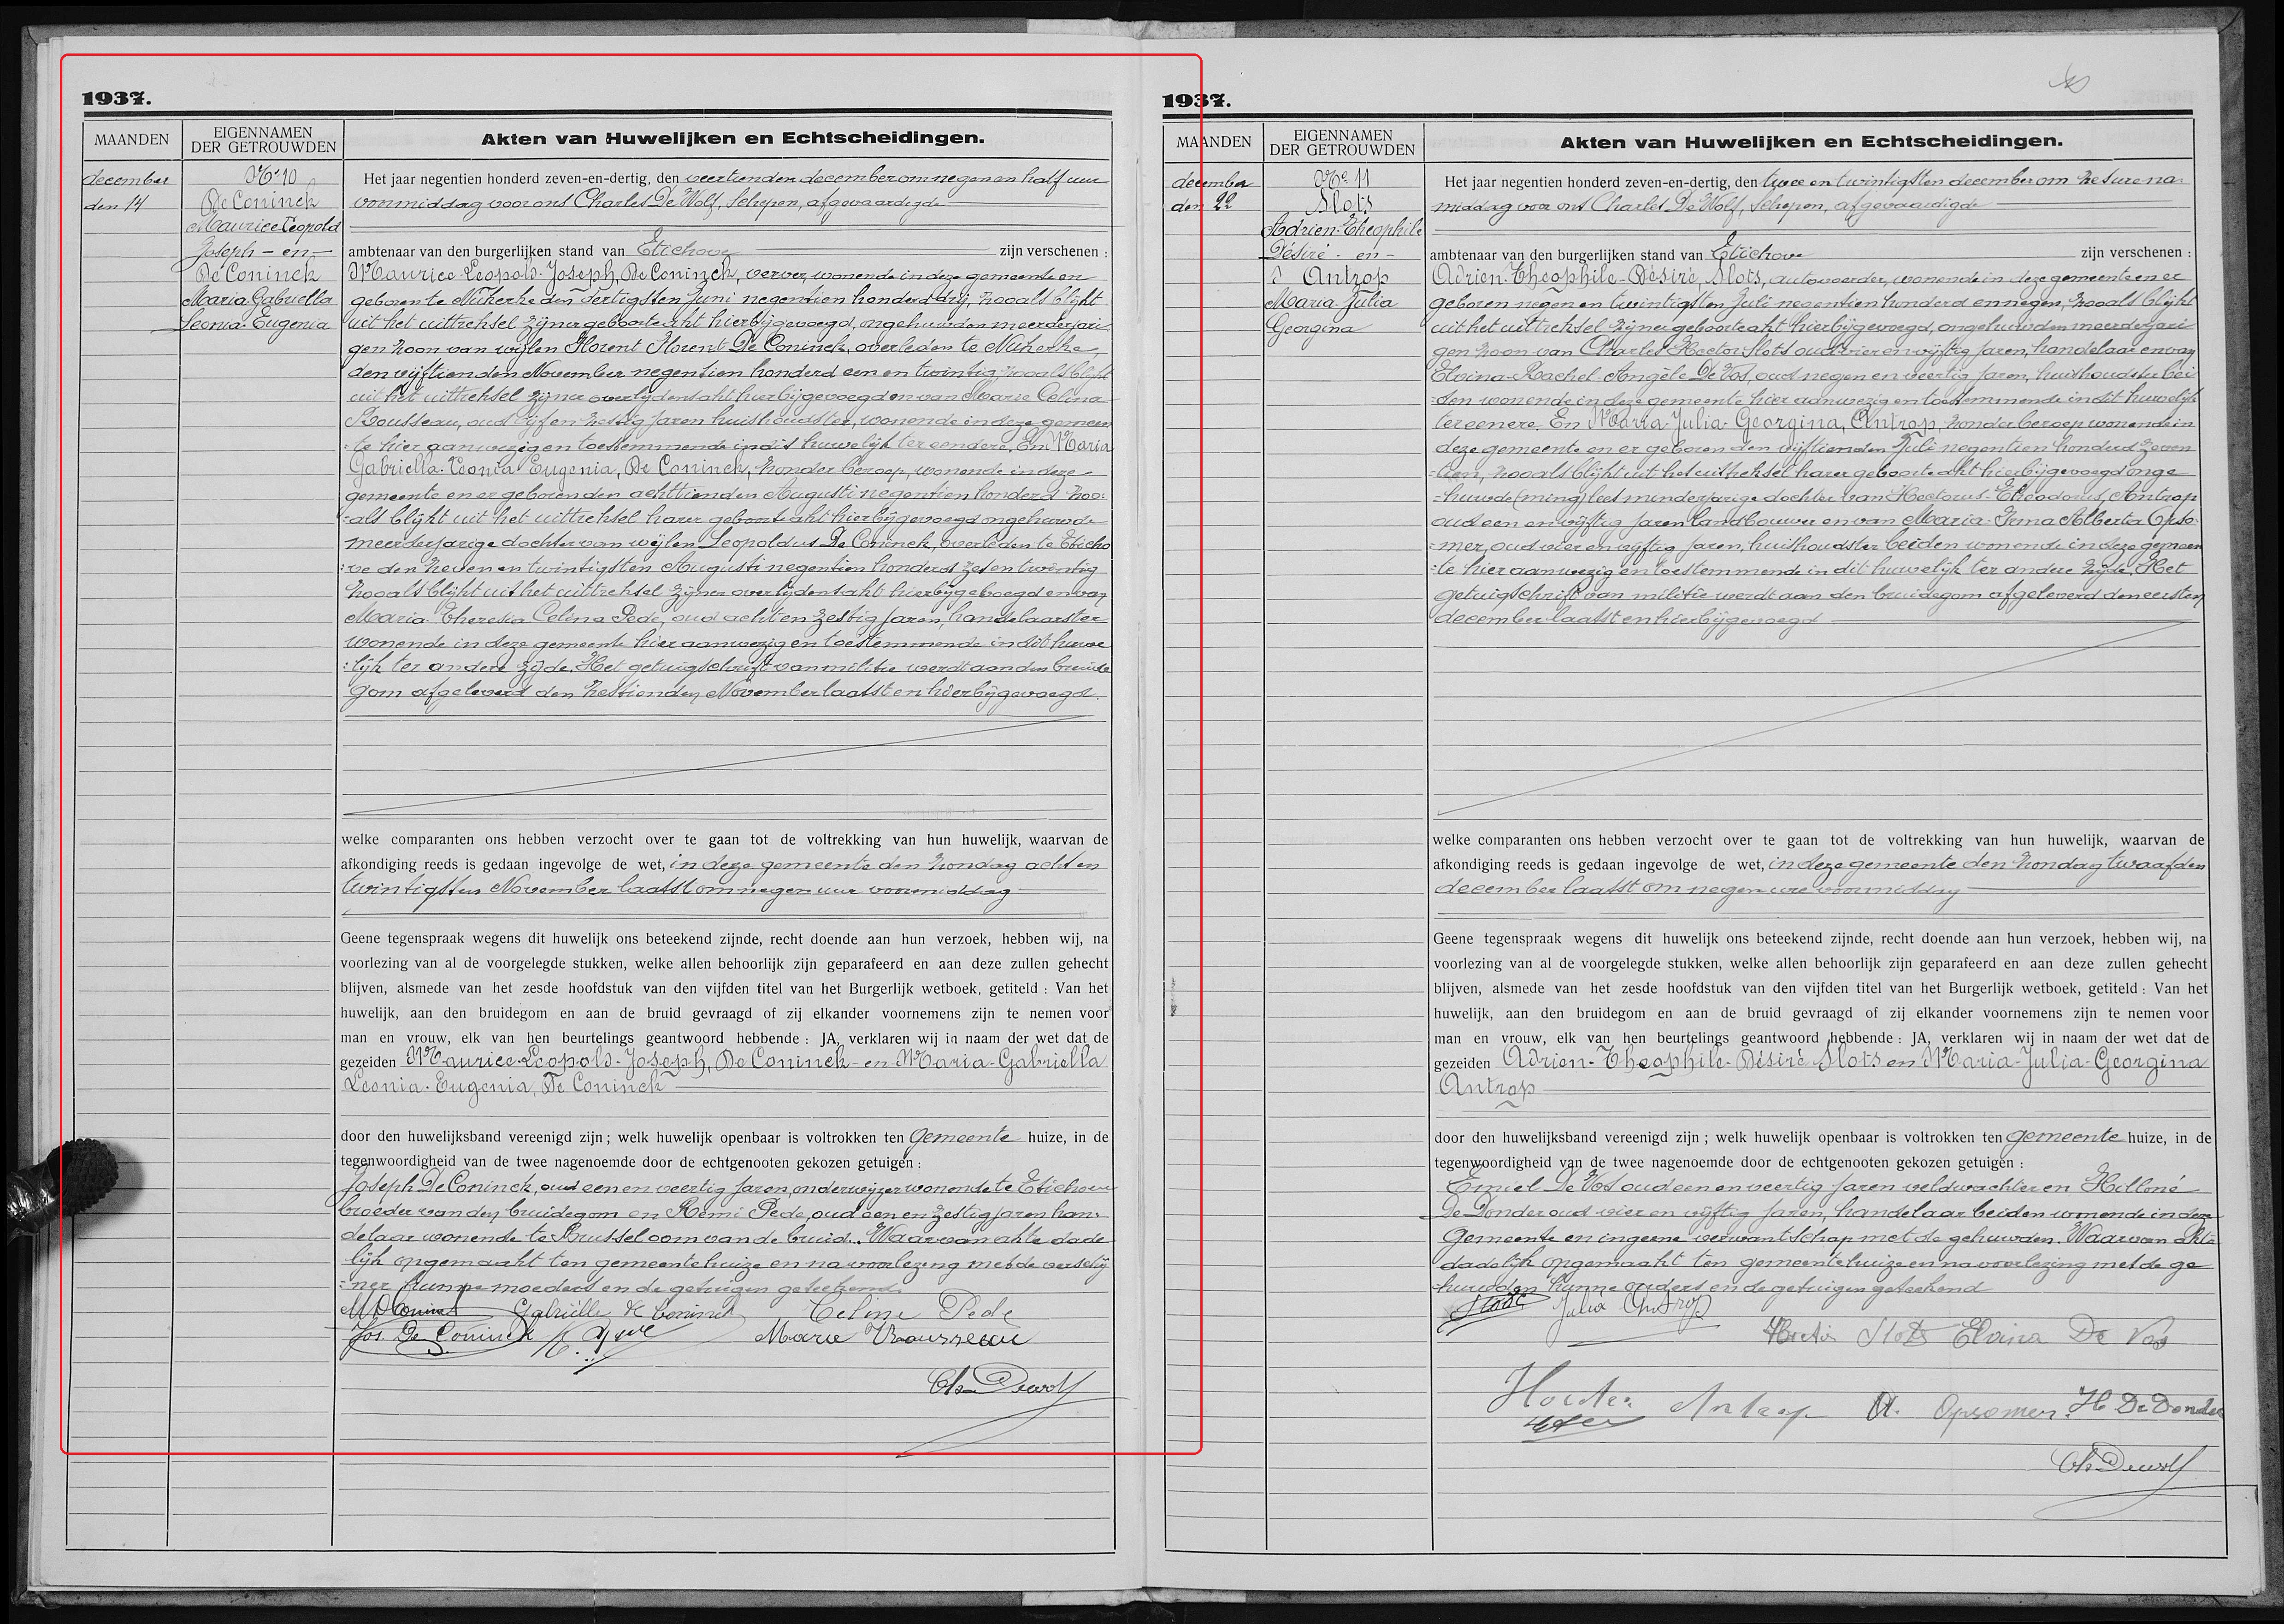 1937.
MAANDEN
EIGENNAMEN
DER GETROUWDEN
Akten van Huwelijken en Echtscheidingen.
december
den 14
No 10
De Coninck
Maurice Leopold
Joseph - en -
De Coninck
Maria Gabriella
Leonia Eugenia
Het jaar negentien honderd zeven-en-dertig, den veertienden december om negen en half uur
voormiddag voor ons Charles De Wolf, Schepen, afgevaardigde
ambtenaar van den burgerlijken stand van Etichove zijn verschenen :
Maurice Leopold-Joseph, De Coninck, verver, wonende in deze gemeente en
geboren te Nukerke den dertigsten Juni negentien honderd drij, zooals blijkt
uit het uittreksel zijner geboorte akt hierbijgevoegd, ongehuwden meerderjari-
gen zoon van wijlen Florent Florent De Coninck, overleden te Nukerke,
den vijftienden November negentien honderd een en twintig, zooals blijkt
uit het uittreksel zijner overlijdensakt hierbijgevoegd en van Marie Celina
Rousseau, oud vijf en zestig jaren huishoudster, wonende in deze gemeen
=te hier aanwezig en toestemmende in dit huwelijk ter eendere, En Maria
Gabriella-Leonia Eugenia, De Coninck, zonder beroep, wonende in deze
gemeente en er geboren den achttienden Augusti negentien honderd zoo=
=als blijkt uit het uittreksel harer geboorte akt hierbijgevoegd ongehuwde
meerderjarige dochter van wijlen Leopoldus De Coninck, overleden te Eticho
=ve den zeven en twintigsten Augusti negentien honderd zes en twintig
zooals blijkt uit het uittreksel zijner overlijdensakt hierbijgevoegd en van
Maria Theresia Celina Pede, oud acht en zestig jaren, handelaarster
wonende in deze gemeente hier aanwezig en toestemmende in dit huwe
=lijk ter andere zijde. Het getuigschrift van militie werdt aan den bruide
gom afgeleverd den zestienden November laatst en hierbijgevoegd.
welke comparanten ons hebben verzocht over te gaan tot de voltrekking van hun huwelijk, waarvan de
afkondiging reeds is gedaan ingevolge de wet, in deze gemeente den zondag acht en
twintigsten November laatst om negen uur voormiddag
Geene tegenspraak wegens dit huwelijk ons beteekend zijnde, recht doende aan hun verzoek, hebben wij, na
voorlezing van al de voorgelegde stukken, welke allen behoorlijk zijn geparafeerd en aan deze zullen gehecht
blijven, alsmede van het zesde hoofdstuk van den vijfden titel van het Burgerlijk wetboek, getiteld : Van het
huwelijk, aan den bruidegom en aan de bruid gevraagd of zij elkander voornemens zijn te nemen voor
man en vrouw, elk van hen beurtelings geantwoord hebbende : JA, verklaren wij in naam der wet dat de
gezeiden Maurice-Leopold-Joseph, De Coninck - en Maria-Gabriella
Leonia-Eugenia, De Coninck
door den huwelijksband vereenigd zijn ; welk huwelijk openbaar is voltrokken ten gemeente huize, in de
tegenwoordigheid van de twee nagenoemde door de echtgenooten gekozen getuigen :
Joseph De Coninck, oud een en veertig jaren, onderwijzer wonende te Etichove
broeder van den bruidegom en Remi Pede, oud een en zestig jaren han=
delaar wonende te Brussel oom van de bruid. Waarvan akte dade
lijk opgemaakt ten gemeentehuize en na voorlezing met de verschij
=ner hunne moeders en de getuigen geteekend
M De Coninck Gabriëlle De Coninck Celine Pede
Jos. De Coninck Marie Rousseau
Ch. Dewolf
1937.
MAANDEN
EIGENNAMEN
DER GETROUWDEN
Akten van Huwelijken en Echtscheidingen.
december
den 22
No 11
Slots
Adrien-Theophile
Désiré - en -
Antrop
Maria-Julia
Georgina
Het jaar negentien honderd zeven-en-dertig, den twee en twintigsten december om zes ure na-
middag voor ons Charles De Wolf, Schepen, afgevaardigde
ambtenaar van den burgerlijken stand van Etichove zijn verschenen :
Adrien-Theophile-Désiré, Slots, autovoerder, wonende in deze gemeente en er
geboren negen en twintigsten Juli negentien honderd en negen, zooals blijkt
uit het uittreksel zijner geboorteakt hierbijgevoegd, ongehuwden meerderjari
gen zoon van Charles Hector Slots oud vier en vijftig jaren, handelaar en van
Elvina-Rachel-Angèle De Vos, oud negen en veertig jaren, huishoudster bei
=den wonende in deze gemeente hier aanwezig en toestemmende in dit huwelijk
ter eenere. En Maria-Julia-Georgina, Antrop, zonder beroep wonende in
deze gemeente en er geboren den vijftienden Juli negentien honderd zeven
=tien, zooals blijkt uit het uittreksel harer geboorte akt hierbijgevoegd onge
=huwde minderjarige dochter van Hectorus-Theodorus, Antrop
oud een en vijftig jaren landbouwer en van Maria-Irma Alberta Opso-
=mer, oud vier en vijftig jaren, huishoudster beiden wonende in deze gemeen
=te hier aanwezig en toestemmende in dit huwelijk ter andere zijde. Het
getuigschrift van militie werdt aan den bruidegom afgeleverd den eersten
december laatst en hierbijgevoegd
welke comparanten ons hebben verzocht over te gaan tot de voltrekking van hun huwelijk, waarvan de
afkondiging reeds is gedaan ingevolge de wet, in deze gemeente den zondag twaalfden
december laatst om negen ure voormiddag
Geene tegenspraak wegens dit huwelijk ons beteekend zijnde, recht doende aan hun verzoek, hebben wij, na
voorlezing van al de voorgelegde stukken, welke allen behoorlijk zijn geparafeerd en aan deze zullen gehecht
blijven, alsmede van het zesde hoofdstuk van den vijfden titel van het Burgerlijk wetboek, getiteld : Van het
huwelijk, aan den bruidegom en aan de bruid gevraagd of zij elkander voornemens zijn te nemen voor
man en vrouw, elk van hen beurtelings geantwoord hebbende : JA, verklaren wij in naam der wet dat de
gezeiden Adrien-Theophile-Désiré Slots en Maria-Julia-Georgina
Antrop
door den huwelijksband vereenigd zijn ; welk huwelijk openbaar is voltrokken ten gemeente huize, in de
tegenwoordigheid van de twee nagenoemde door de echtgenooten gekozen getuigen :
Emiel De Vos oud een en veertig jaren veldwachter en Hilloné
De Donder oud vier en vijftig jaren, handelaar beiden wonende in deze
gemeente en in geene verwantschap met de gehuwden. Waarvan akte
dadelijk opgemaakt ten gemeentehuize en na voorlezing met de ge
=huwden hunne ouders en de getuigen geteekend
Julia Antrop
Slots Elvina De Vos
Antrop A. Opsomer. H De Donder
Ch. Dewolf